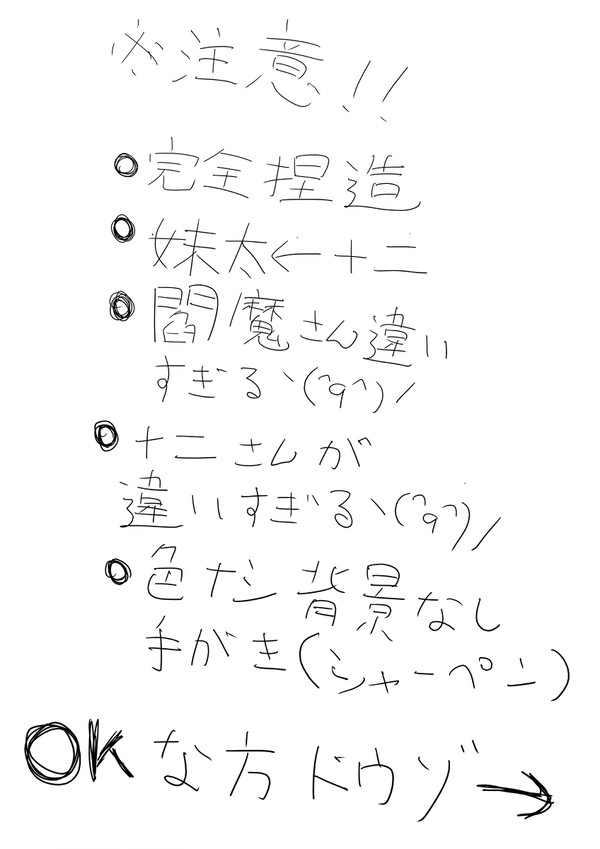 ※注意!!
●完全捏造
●妹太←十二
●閻魔さん違い
すぎるヽ(^q^)/
●十二さんが
違いすぎるヽ(^q^)/
●色ナシ 背景なし
手がき(シャーペン)
OKな方ドウゾ→